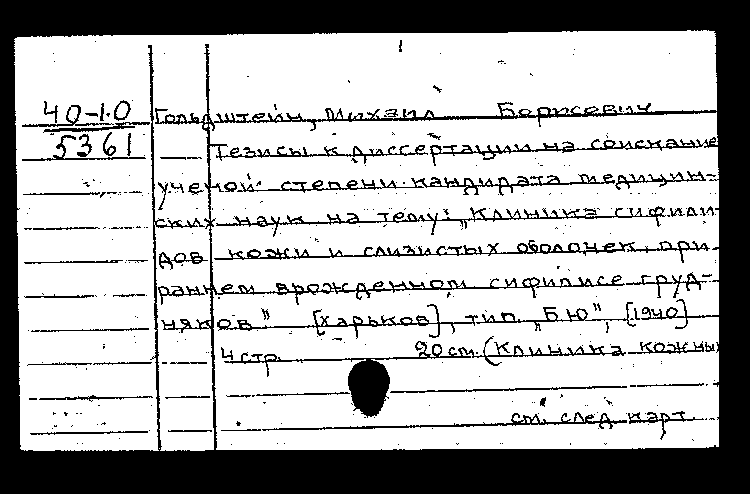 40-1.0
5361
Гольдштейн, Михаил Борисевич
Тезисы к диссертации на соискание
ученой степени кандидата медицин-
ских наук на тему: „Клиника сифили-
дов кожи и слизистых оболочек при
раннем врожденном сифилисе груд-
няков" [Харьков], тип. „Б.Ю", [1940]
4 стр. 20 см. (Клиника кожны
см. след. карт.